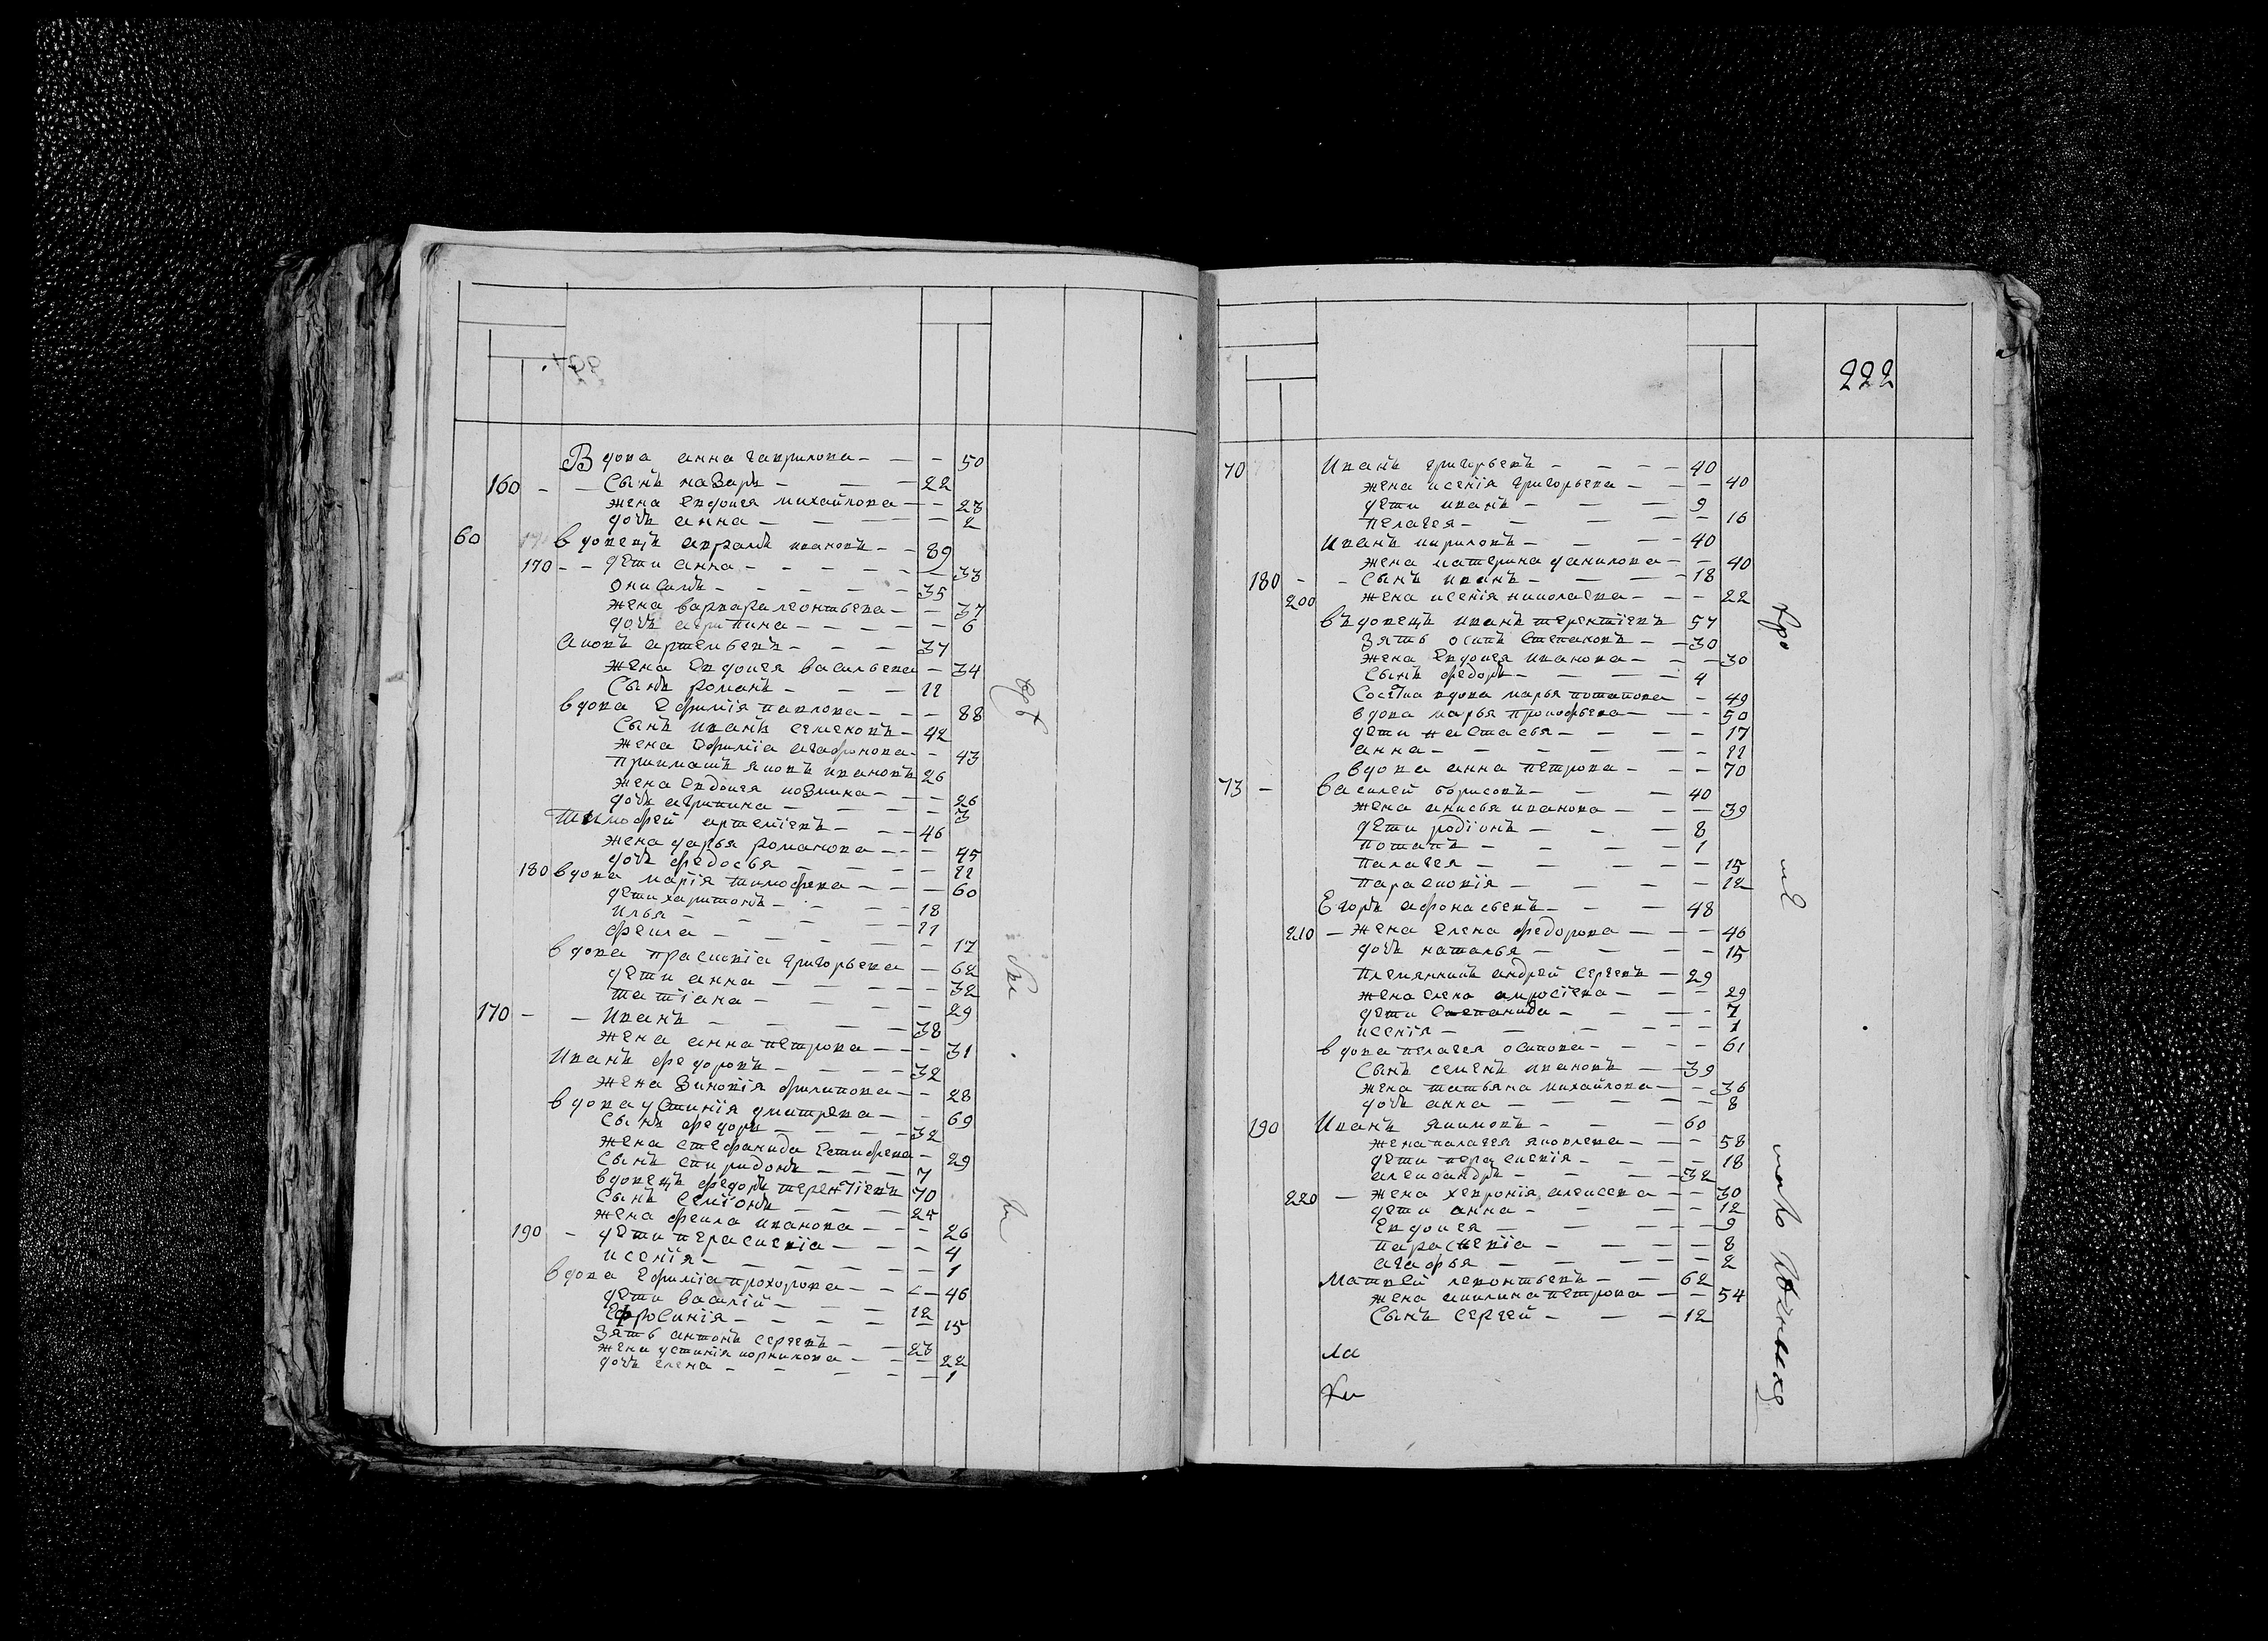 Вдова анна гаврилова - - - 50
160 - - Сынъ назаръ - - - 22
жена Евдокея михайлова - - 23
дочь анна - - - - 2
60 вдовецъ аврамъ ивановъ - - 89
170 - - дети анна - - - - - 33
онисимъ - - - - 35
жена варвара леонтьева - - 37
дочь агрипина - - - - - 6
Яковъ артемьевъ - - - 37
жена Евдокея васильева - 34
Сынъ романъ - - - 11
вдова Ефимія павлова - - - 88
Сынъ иванъ семеновъ - 42
жена Ефиміа агафонова - - 43
приимашъ яковъ ивановъ 26
жена Евдокея козмина - - - 26
дочь агрипина - - - - 3
Тимофей артеміевъ - - - 46
жена дарья романова - - - 45
дочь федосья - - - - 11
180 вдова марія тимофева - - - 60
дети харитонъ - - - - 18
илья - - - - - 11
фекла - - - - - 17
вдова прасковіа григорьева - 62
дети анна - - - - - 32
татіана - - - - 29
170 - - Иванъ - - - - 38
жена анна петрова - - - 31
Иванъ федоровъ - - - - 32
жена зиновія филипова - - 28
вдова устинія дмитрева - - 69
Сынъ федоръ - - - - 32
жена стефанида Естифева - 29
Сынъ спиридонъ - - - 7
вдовецъ федоръ терентіевъ 70
Сынъ Семіонъ - - - 25
жена фекла иванова - - - 26
190 - дети параскевіа - - - 4
ксенія - - - - - - 1
вдова Ефиміа прохорова - - - 46
дети василій - - - 12
Ефросинія - - - - - 15
зять антонъ сергеевъ - - 23
жена устинія корнилова - - - 22
дочь елена - - - - - 1
222
70 Иванъ григорьевъ - - - - 40
жена ксенія григорьева - - - 40
дети иванъ - - - 9
пелагея - - - - 16
Иванъ кириловъ - - - 40
жена катерина данилова - - 40
180 - - Сынъ иванъ - - - - 18
200 жена ксенія николаева - - - 22
въдовецъ иванъ терентіевъ 57
зять осипъ Степановъ - - 30
жена Евдокея иванова - - - 30
Сынъ федоръ - - - - 4
Соседка вдова марья потапова - 49
вдова марья прокофьева - - - 50
дети настасья - - - - 17
анна - - - - - - 11
вдова анна петрова - - - 70
73 - василей борисовъ - - - 40
жена анисья иванова - - - 39
дети родіонъ - - - 8
потапъ - - - - 1
палагея - - - - - 15
Парасковія - - - - 12
Егоръ афонасьевъ - - - 48
210 - жена Елена федорова - - - 46
дочь наталья - - - - 15
Племянникъ андрей сергеевъ - 29
жена елена амросіева - - - 29
дети степанида - - - - 7
ксенія - - - - - - 1
вдова пелагея осипова - - - - 61
Сынъ семенъ ивановъ - 39
жена татьяна михайлова - - 36
дочь анна - - - - - 8
190 Иванъ якимовъ - - - 60
жена палагея яковлева - - - 58
дети параскевія - - - - 18
александръ - - - 32
220 - жена хевронія алексева - - 30
дети анна - - - - 12
Евдокея - - - - - 9
параскевіа - - - - - 8
агафья - - - - - 2
Матвей левонтьевъ - - 62
жена акилина петрова - - 54
Сынъ Сергей - - - 12